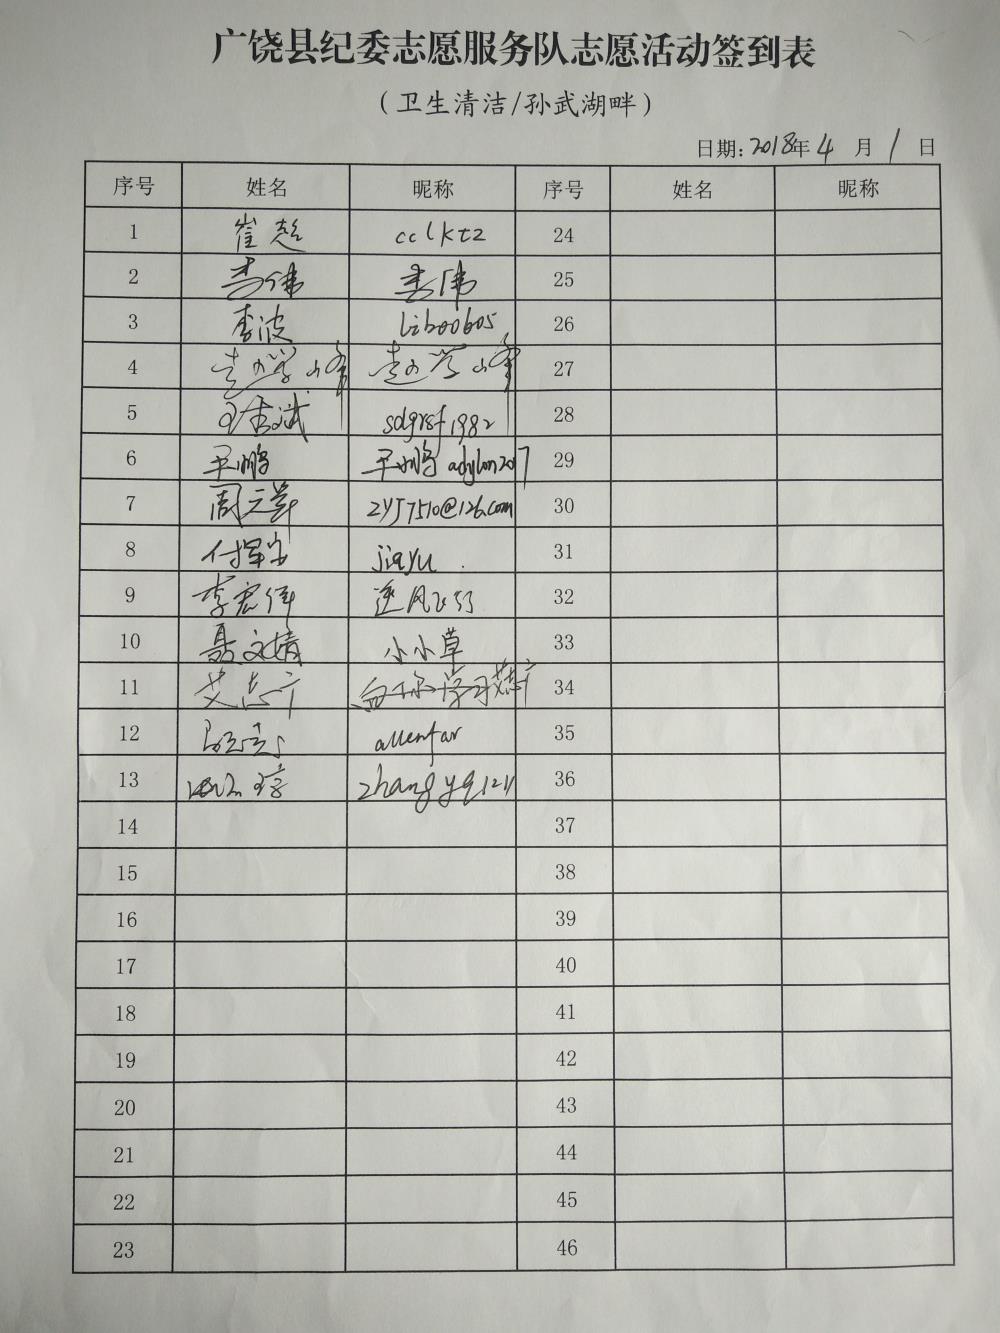 广饶县纪委志愿服务队志愿活动签到表
（卫生清洁/孙武湖畔）
日期：2018年4月1日
序号 姓名 昵称 序号 姓名 昵称
1 崔超 cclktz 24
2 李伟 李伟 25
3 李波 liboob05 26
4 赵学峰 赵学峰 27
5 sdgrsf1982 28
6 王鹏 王鹏 adylon2017 29
7 周元 zyj7510@126.com 30
8 付军 jiayu 31
9 李宏伟 逆风飞行 32
10 聂文婧 小小草 33
11 艾志广 向你学习艾志广 34
12 allenfar 35
13 zhangyq1211 36
14 37
15 38
16 39
17 40
18 41
19 42
20 43
21 44
22 45
23 46